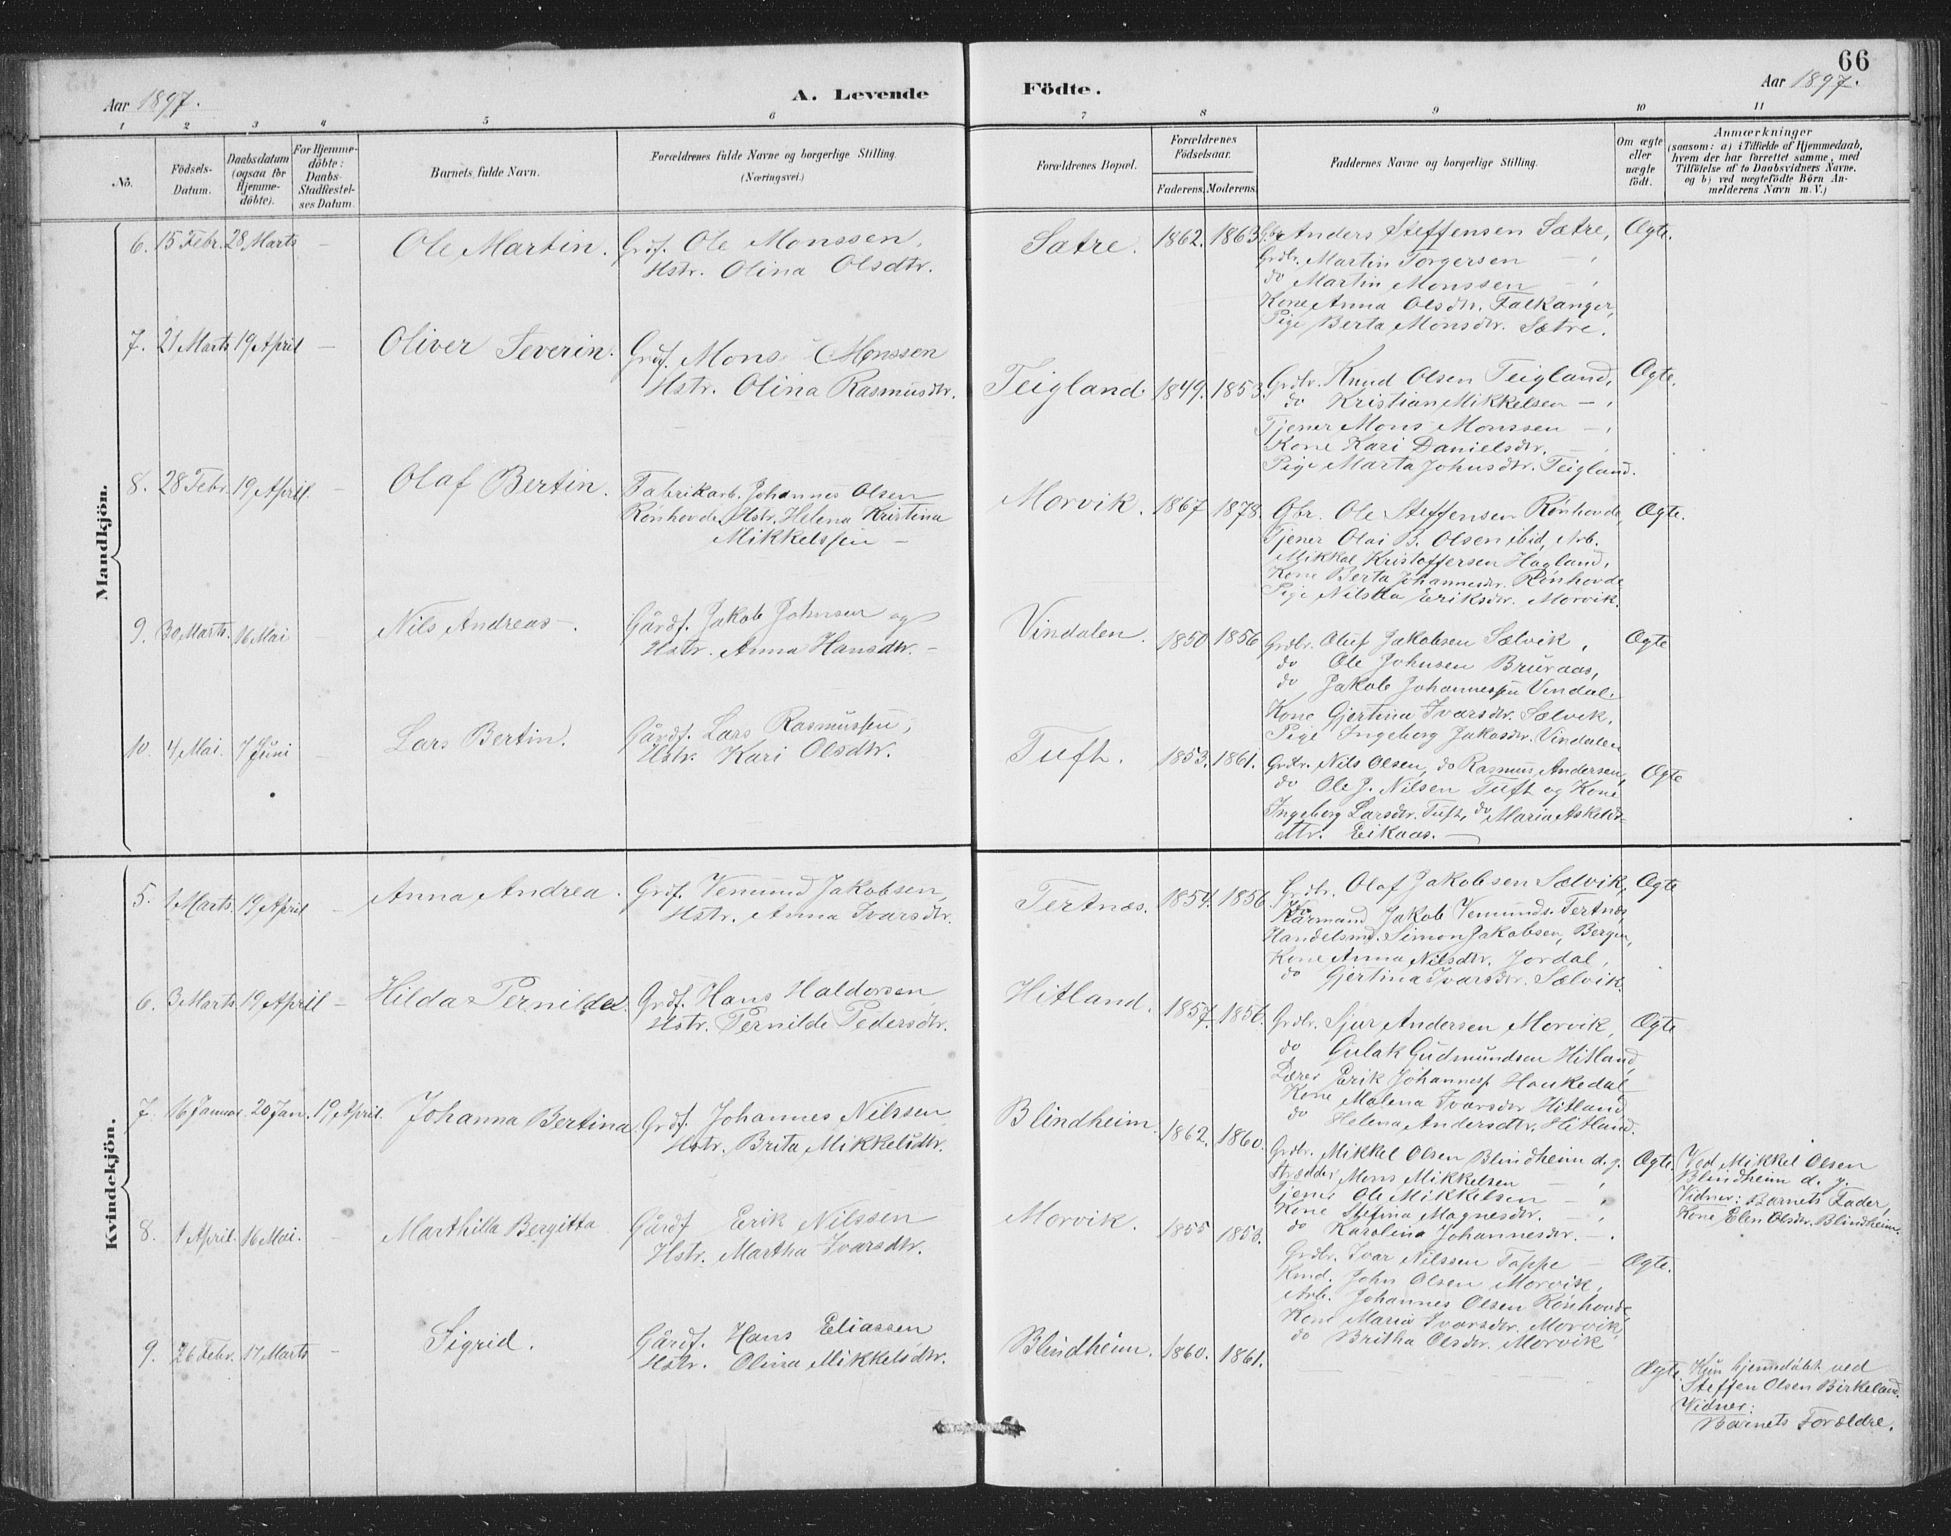 66
Aar 1897.
A. Levende
Födte.
Aar 1897.
1 2 3 4 5 6 7 8 9 10 11
No.
Födsels-
Datum.
Daabsdatum
(ogsaa for
Hjemme-
döbte).
For Hjemme-
döbte:
Daabs-
Stadfæstel-
ses Datum.
Barnets fulde Navn.
Forældrenes fulde Navne og borgerlige Stilling.
(Næringsvei.)
Forældrenes Bopæl.
Forældrenes
Födselsaar.
Faderens. Moderens.
Faddernes Navne og borgerlige Stilling.
Om ægte
eller
uægte
födt.
Anmærkninger
(saasom: a) i Tilfælde af Hjemmedaab,
hvem der har forrettet samme, med
Tilföielse af to Daabsvidners Navne,
og b) ved uægtefödte Börn An-
melderens Navn m. V.)
Mandkjön.
6. 15 Febr. 28 Marts — Ole Martin. Grdf. Ole Monssen,
Hstr. Olina Olsdtr.
Sætre. 1862. 1863. Gbr. Anders Steffensen Sætre, Ægte.
Grdbr. Martin Torgersen —
do Martin Monssen —
Kone Anna Olsdtr. Falkanger,
Pige Berta Monsdtr. Sætre.
7. 21 Marts 19 April — Oliver Severin. Grdf. Mons Monssen
Hstr. Olina Rasmusdtr.
Teigland. 1849. 1853. Grdbr. Knud Olsen Teigland, Ægte.
do Kristian Mikkelsen —
Tjener Mons Monssen —
Kone Kari Danielsdtr. —
Pige Marta Johnsdtr. Teigland.
8. 28 Febr. 19 April. — Olaf Bertin. Fabrikarb. Johannes Olsen
Rönhovde, Hstr. Helena Kristina
Mikkelssen —
Morvik. 1867 1878. Gbr. Ole Steffensen Rönhovde, Ægte.
Tjener Olai B. Olsen ibid, Arb.
Mikkal Kristoffersen Hagland,
Kone Berta Johannesdtr. Rönhovde
Pige Nilska Eriksdtr. Morvik.
9. 30 Marts. 16 Mai — Nils Andreas —. Gårdf. Jakob Johnsen og
Hstr. Anna Hansdtr. —
Vindalen. 1850 1856 Grdbr. Oluf Jakobsen Sælvik, Ægte
do Ole Johnsen Bruraas,
do Jakob Johannessen Vindal.
Kone Gjertina Ivarsdtr. Sælvik,
Pige Ingeborg Jakobsdtr. Vindalen
10. 4 Mai. 7 Juni — Lars Bertin. Gårdf. Lars Rasmussen,
Hstr. Kari Olsdtr.
Tuft. 1853. 1861. Grdbr. Nils Olsen, do Rasmus Andersen, Ægte
do Ole J. Nilsen Tuft og Kone
Ingeborg Larsdtr. Tuft, do Maria Askelds-
dtr. Eikaas. —
Kvindekjön.
5. 1 Marts 19 April — Anna Andrea. Grdf. Vemund Jakobsen,
Hstr. Anna Ivarsdtr.
Tertnæs. 1854. 1856. Grdbr. Olaf Jakobsen Sælvik, Ægte
Kårmand Jakob Vemunds. Tertnæs,
Handelsmd. Simon Jakobsen, Bergen,
Kone Anna Nilsdtr. Jordal,
do Gjertina Ivarsdtr. Sælvik.
6. 3 Marts 19 April — Hilda Pernilda. Grdf. Hans Haldorsen
Hstr. Pernilde Pedersdtr.
Hitland. 1857. 1856. Grdbr. Sjur Andersen Morvik, Ægte
do Gulak Gudmundsen Hitland,
Lærer Erik Johanness. Haukedal
Kone Malena Ivarsdtr Hitland
do Helena Andersdtr. Hitland.
7. 16 Januar 20 Jan. 19 April. Johanna Bertina. Grdf. Johannes Nilssen
Hstr. Brita Mikkelsdtr.
Blindheim. 1862. 1860. Grdbr. Mikkel Olsen Blindheim d. y. Ægte. Ved Mikkel Olsen
Skrædder Mons Mikkelsen — Blindheim d. y.
Tjener Ole Mikkelsen — Vidner: Barnets Fader,
Kone Stefina Magnesdtr. — Kone Elen Olsdtr. Blindheim.
do Karolina Johannesdtr. —
8. 1 April. 16 Mai. — Marthilla Bergitta Gårdf Erik Nilssen
Hstr. Martha Ivarsdtr.
Morvik. 1855 1853. Grdbr. Ivar Nilssen Toppe — Ægte.
Kmd. John Olsen Morvik,
Arb. Johannes Olsen Rönhovde
Kone Maria Ivarsdtr. Morvik,
do Britha Olsdtr. Morvik
9. 26 Febr. 17 Marts — Sigrid. Gårdf. Hans Eliassen
Hstr. Olina Mikkelsdtr.
Blindheim. 1860. 1861. Ægte. Kun hjemdöbt ved
Steffen Olsen Birkeland.
Vidner:
Barnets Forældre.